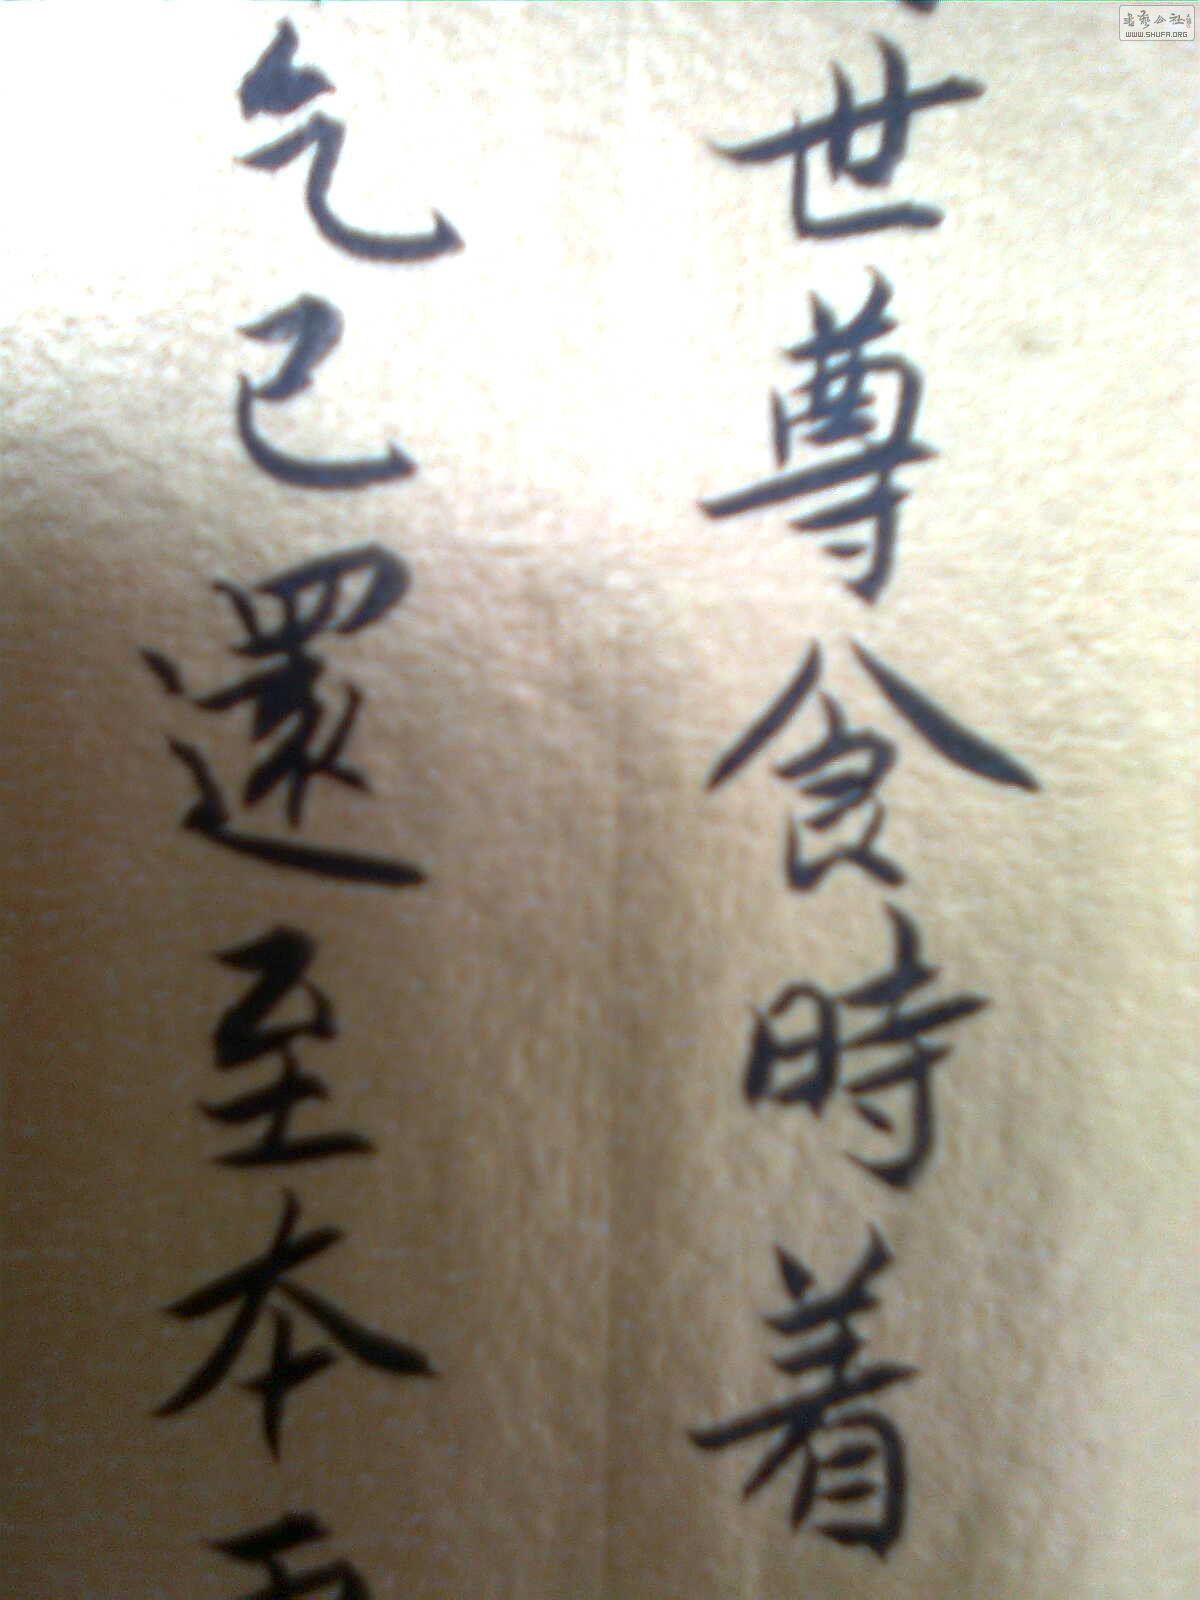 世尊食時着
乞已還至本
WWW.SHUFA.ORG